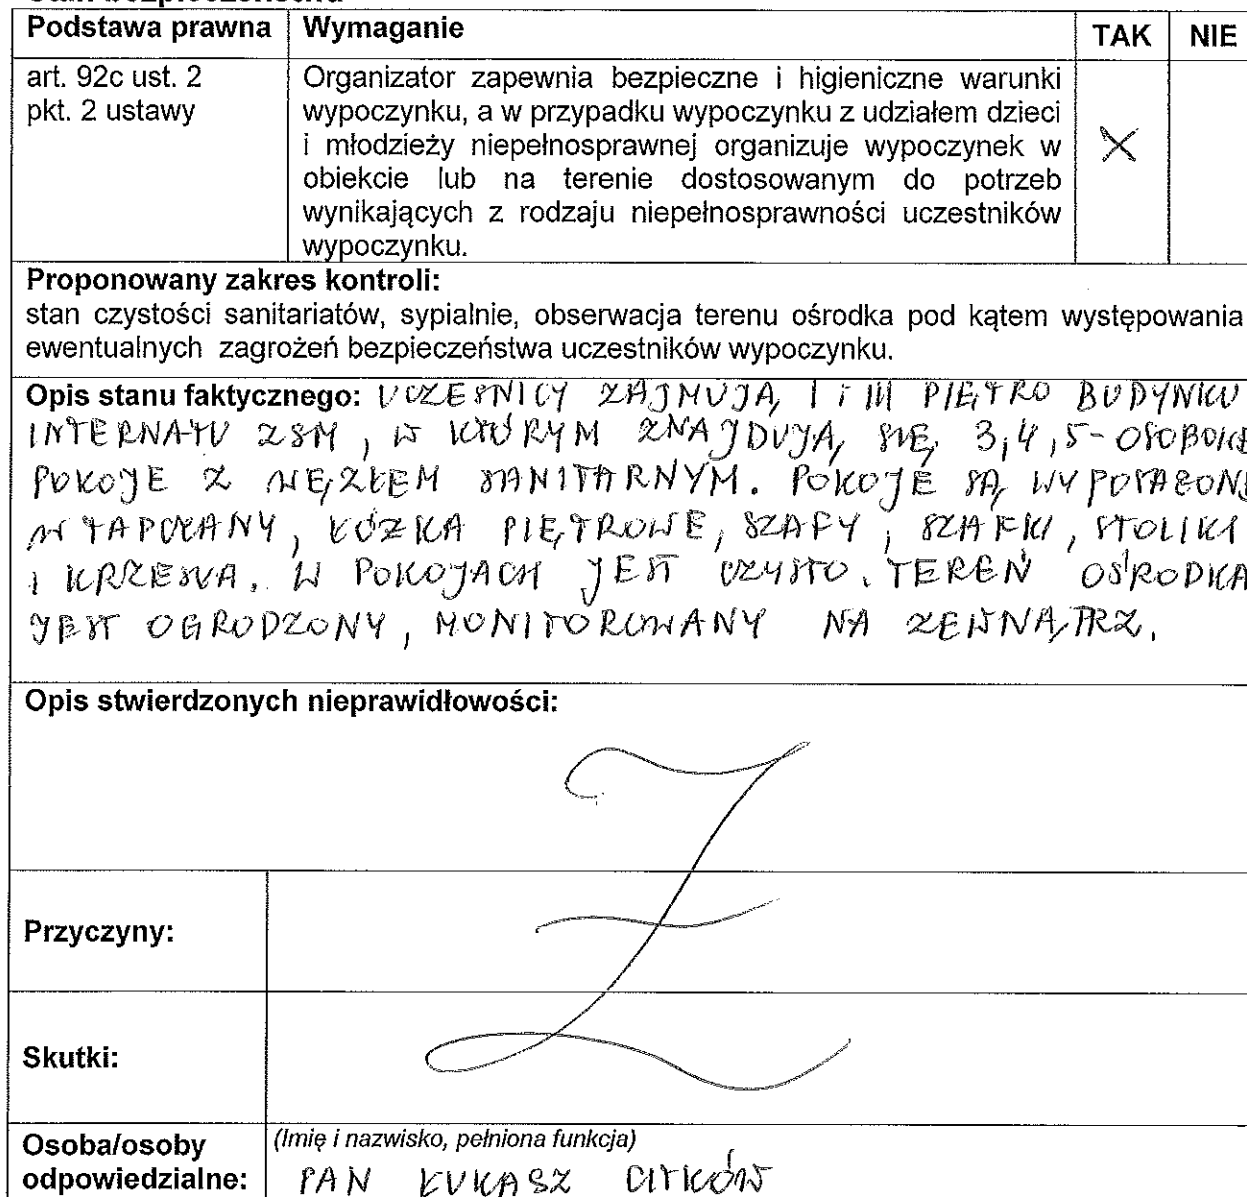 Podstawa prawna Wymaganie TAK NIE
art. 92c ust. 2
pkt. 2 ustawy
Organizator zapewnia bezpieczne i higieniczne warunki
wypoczynku, a w przypadku wypoczynku z udziałem dzieci
i młodzieży niepełnosprawnej organizuje wypoczynek w
obiekcie lub na terenie dostosowanym do potrzeb
wynikających z rodzaju niepełnosprawności uczestników
wypoczynku.
X
Proponowany zakres kontroli:
stan czystości sanitariatów, sypialnie, obserwacja terenu ośrodka pod kątem występowania
ewentualnych zagrożeń bezpieczeństwa uczestników wypoczynku.
Opis stanu faktycznego: UCZESNICY ZAJMUJĄ I i III PIĘTRO BUDYNKU
INTERNATU ZSM, W KTÓRYM ZNAJDUJĄ SIĘ 3,4,5-OSOBOWE
POKOJE Z WĘZŁEM SANITARNYM. POKOJE SĄ WYPOSAŻONE
W TAPCZANY, ŁÓŻKA PIĘTROWE, SZAFY, SZAFKI, STOLIKI
I KRZESŁA. W POKOJACH JEST CZYSTO. TEREN OŚRODKA
JEST OGRODZONY, MONITOROWANY NA ZEWNĄTRZ.
Opis stwierdzonych nieprawidłowości:
Przyczyny:
Skutki:
Osoba/osoby
odpowiedzialne:
(Imię i nazwisko, pełniona funkcja)
PAN ŁUKASZ